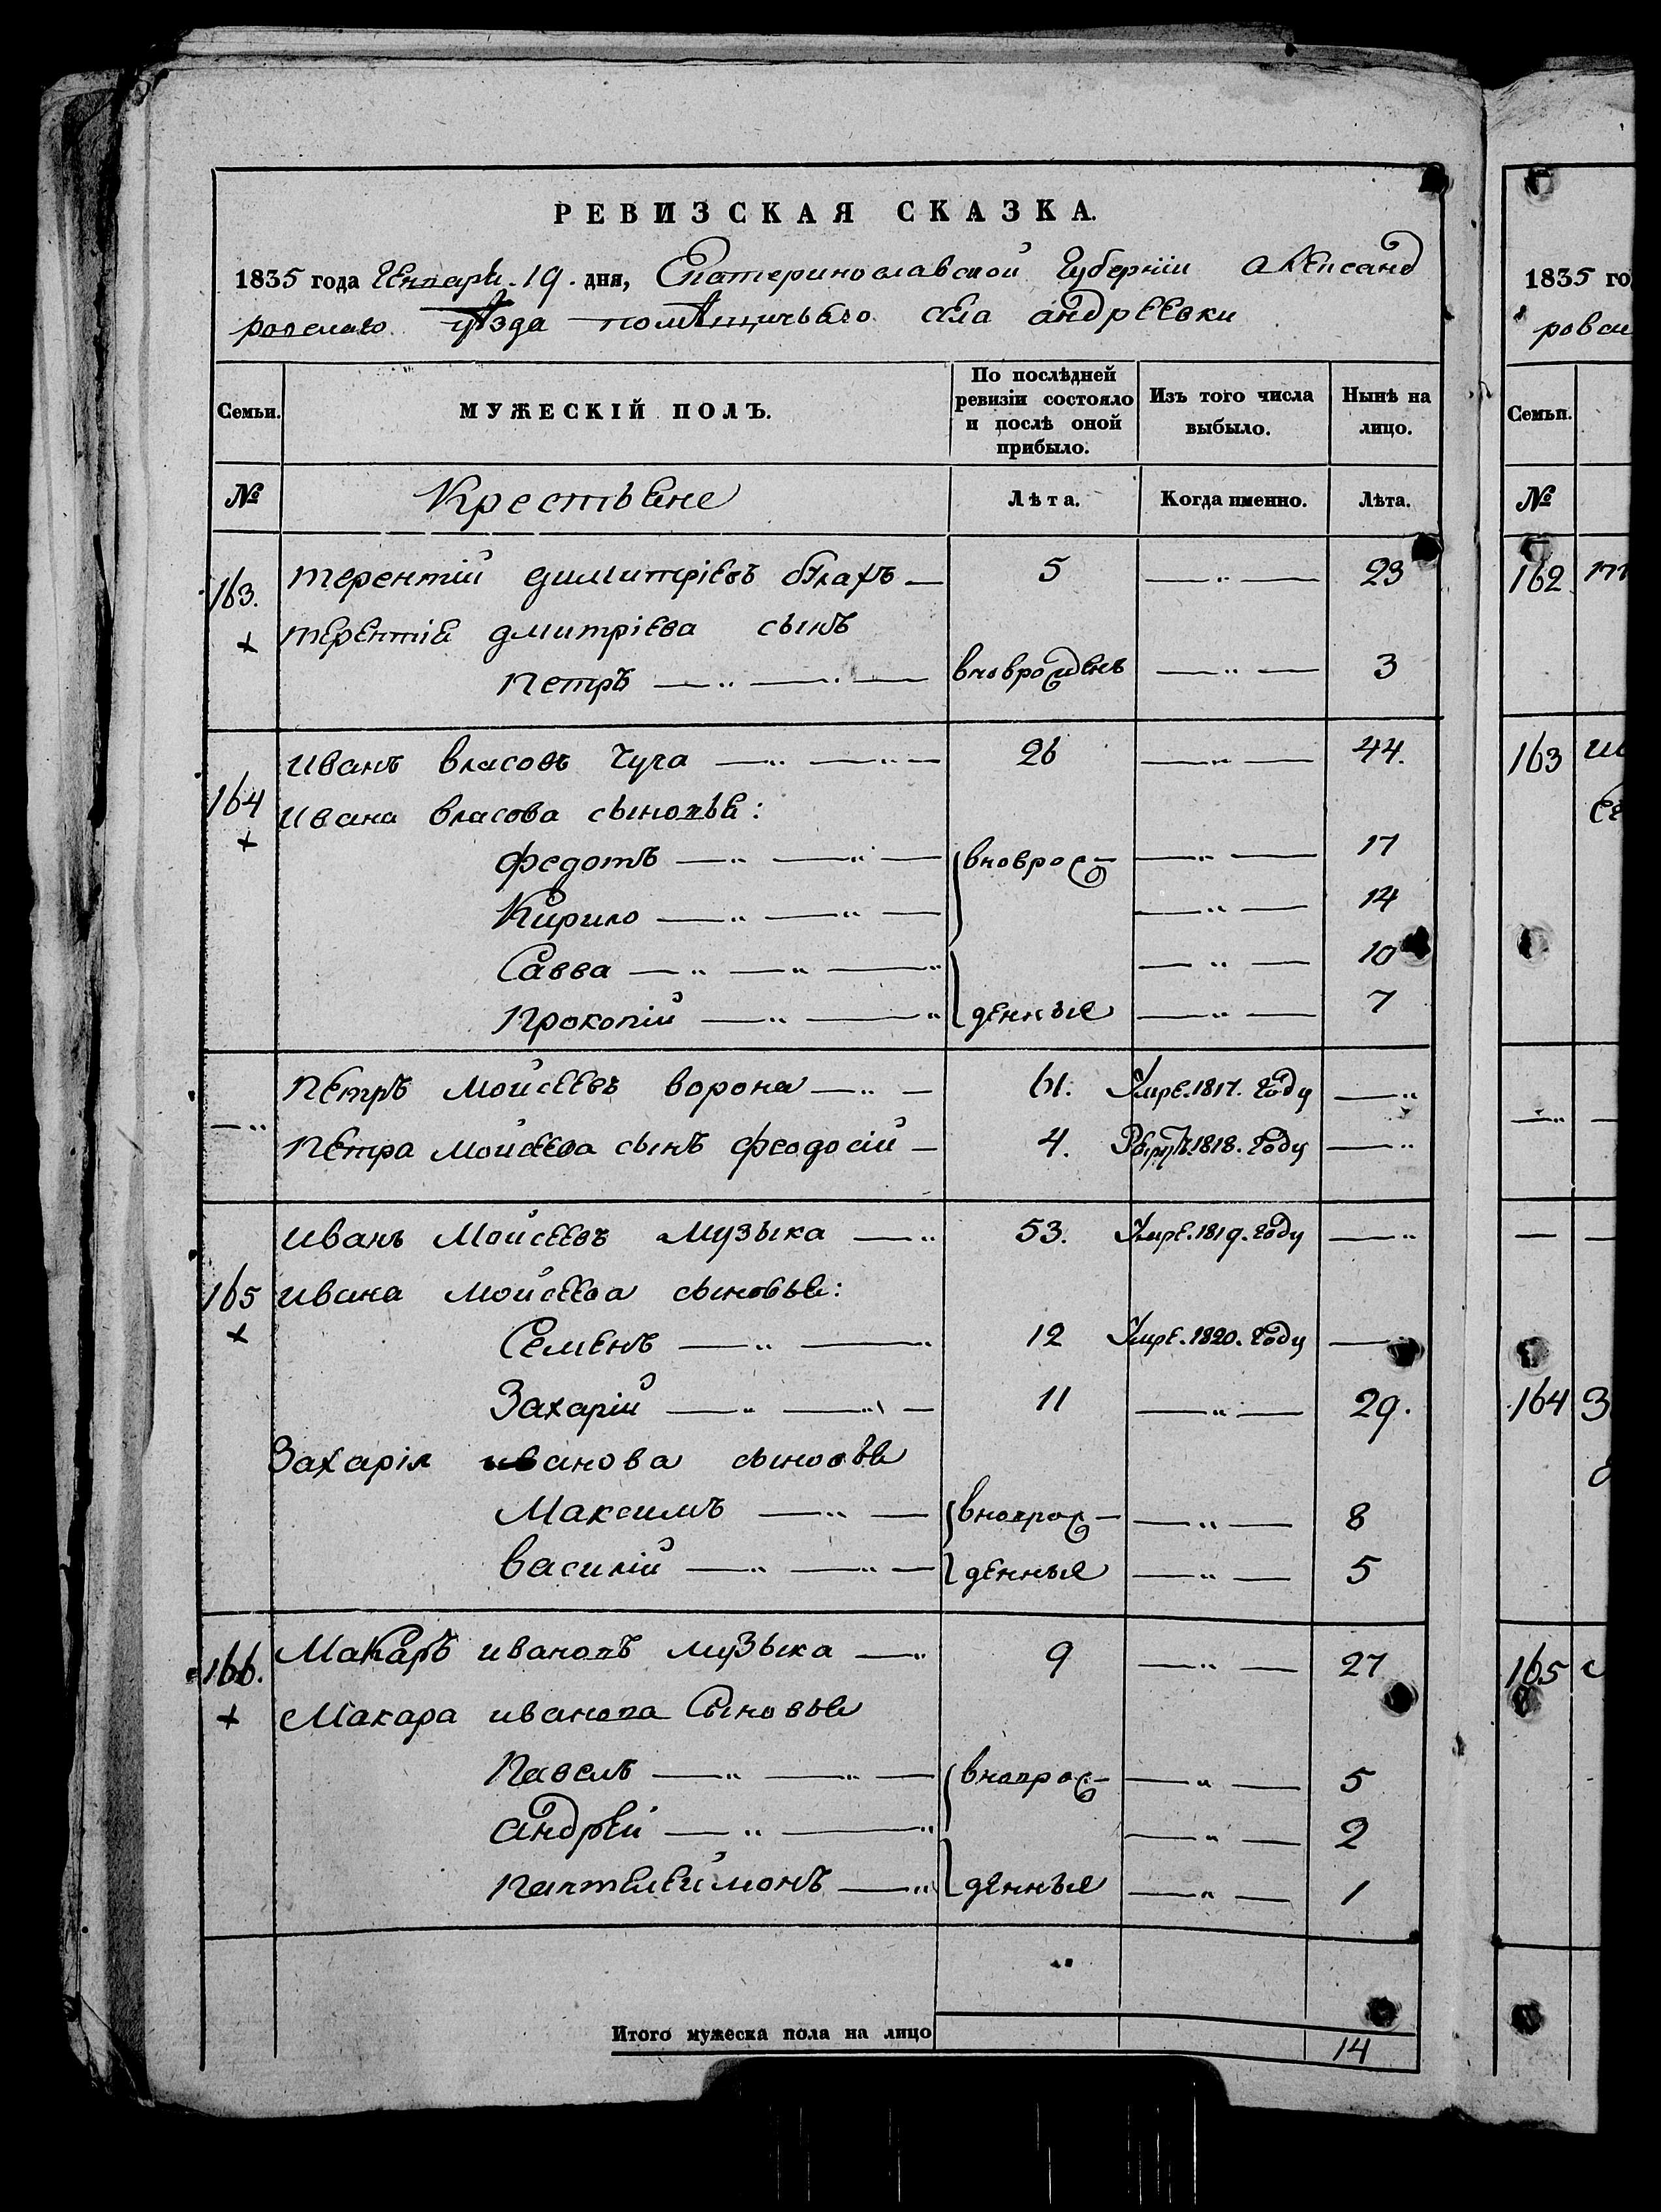 РЕВИЗСКАЯ СКАЗКА.
1835 года Генваря. 19. дня, Екатеринославской Губернiи Александ
ровскаго уѣзда помѣщичьяго села андреевки
Семьи. МУЖЕСКIЙ ПОЛЪ. По послѣдней ревизiи состояло и послѣ оной прибыло. Изъ того числа выбыло. Нынѣ на лицо.
№ Крестьяне Лѣта. Когда именно. Лѣта.
163. терентiй димитрiевъ 5 23
терентiя дмитрiева сынъ
петръ вноврожденъ 3
164 иванъ власовъ Чуча 26 44.
ивана власова сыновья:
федотъ вноврож- 17
Кирило 14
Савва 10
прокопiй денные 7
петръ мойсеевъ ворона 61. Умре. 1817. году
петра мойсеева сынъ феодосiй 4. 1818. году
иванъ Мойсеевъ музыка 53. Умре. 1819. году
165 ивана мойсеева сыновья:
Семенъ 12 Умре. 1820. году
Захарiй 11 29.
Захарiя иванова сыновья
Максимъ вноврож- 8
василiй денные 5
166. Макаръ ивановъ музыка 9 27
Макара иванова Сыновья
павелъ вноврож- 5
андрей 2
пантелеймонъ денные 1
Итого мужеска пола на лицо 14
1835 го
ровск
Семьи.
№
162
163
164
165